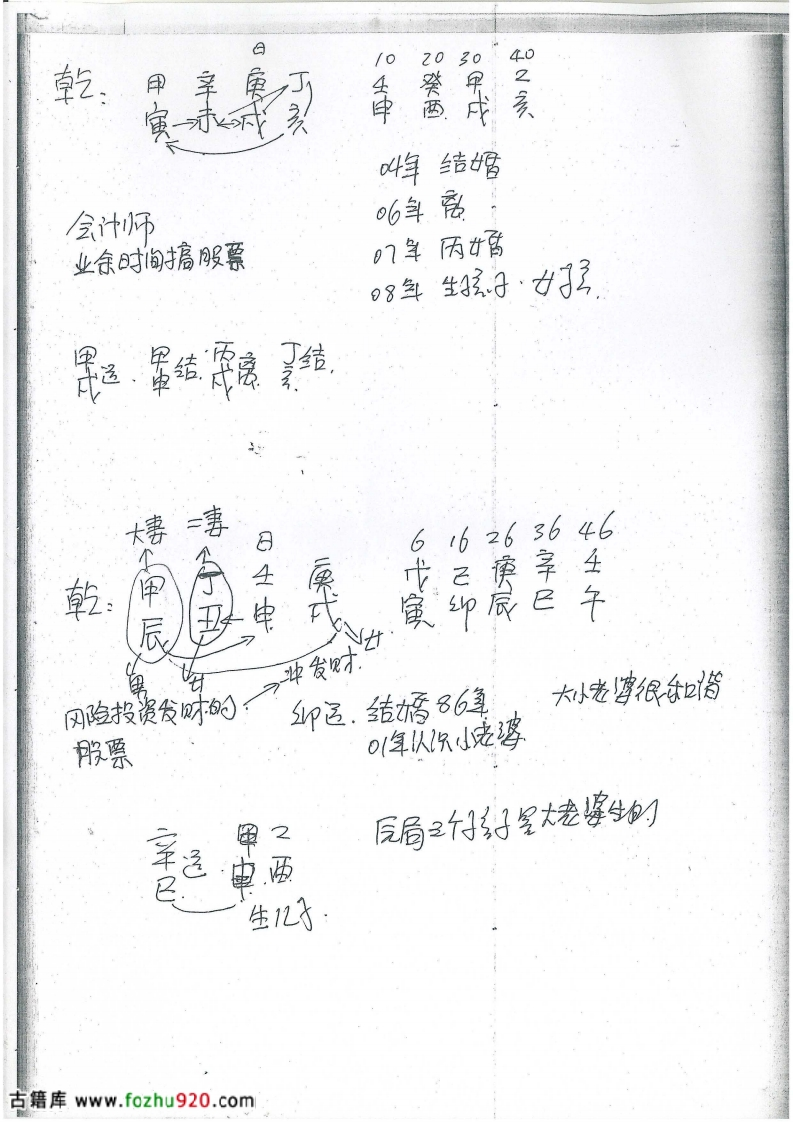 日
乾： 甲 辛 庚 丁
寅 未 戌 亥
10 20 30 40
壬 癸 甲 乙
申 酉 戌 亥
04年 结婚
06年 离
07年 丙婚
08年 生孩子·女孩.
会计师
业余时间搞股票
甲戌运. 甲申结. 丙戌离 丁亥结.
大妻 二妻 日
乾： 甲 丁 壬 庚
辰 丑 申 戌
男 女 女
冲发财.
6 16 26 36 46
戊 己 庚 辛 壬
寅 卯 辰 巳 午
风险投资发财的
股票
卯运. 结婚86年
01年认识小老婆
大小老婆很和谐
辛巳运. 甲申 乙酉
生儿子.
三个孩子是大老婆生的
古籍库 www.fozhu920.com